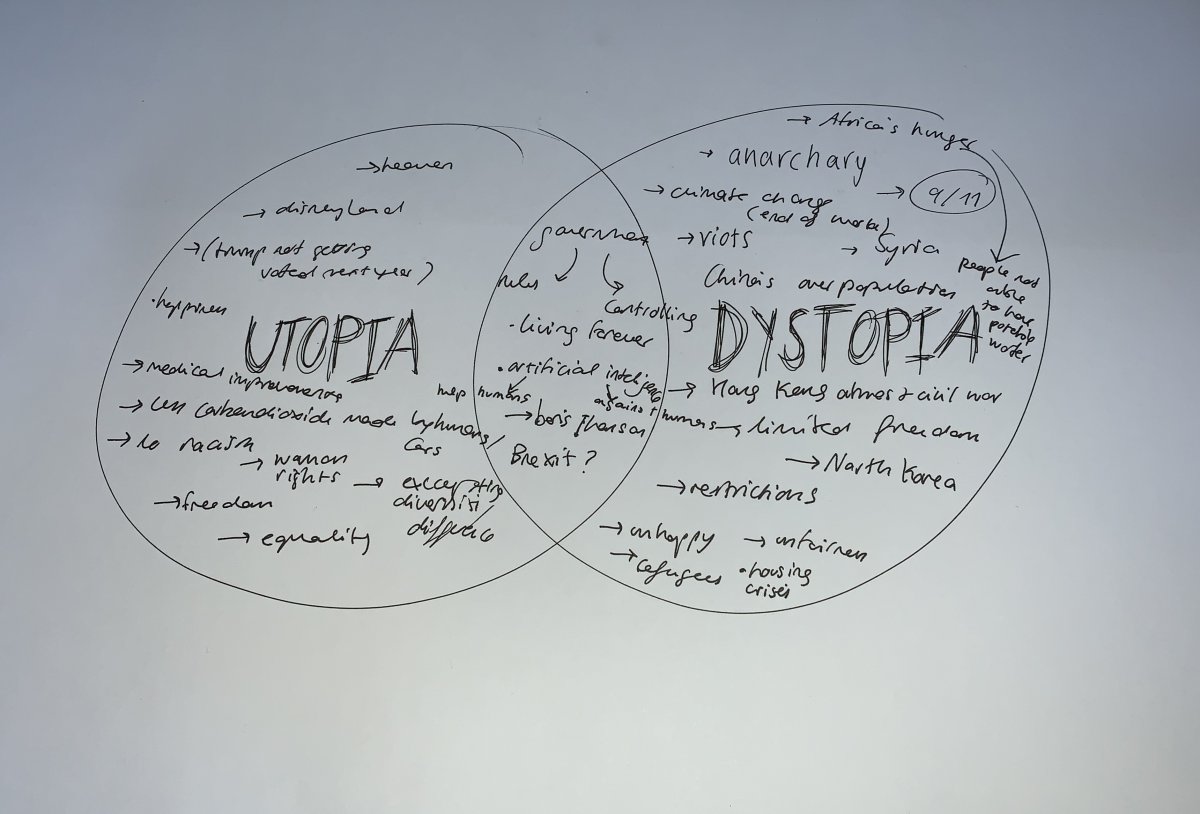 → heaven
→ disneyland
→ (trump not getting
voted next year)
• happiness
UTOPIA
→ medical improvements
→ less carbondioxide made by humans/
cars
→ no racism
→ woman
rights
→ excepting
diversity/
difference
→ freedom
→ equality
government
rules
controlling
• living forever
• artificial inteligence
help humans
against humans
→ boris Jhonson
Brexit?
→ Africa's hunger
people not
able
to have
potable
water
→ anarchary
→ climate change
(end of world)
→ 9/11
→ riots
→ Syria
China's overpopulation
DYSTOPIA
→ Hong Kong almost civil war
→ limited freedom
→ North Korea
→ restrictions
→ unhappy
→ unfairness
→ refugees
• housing
crisis